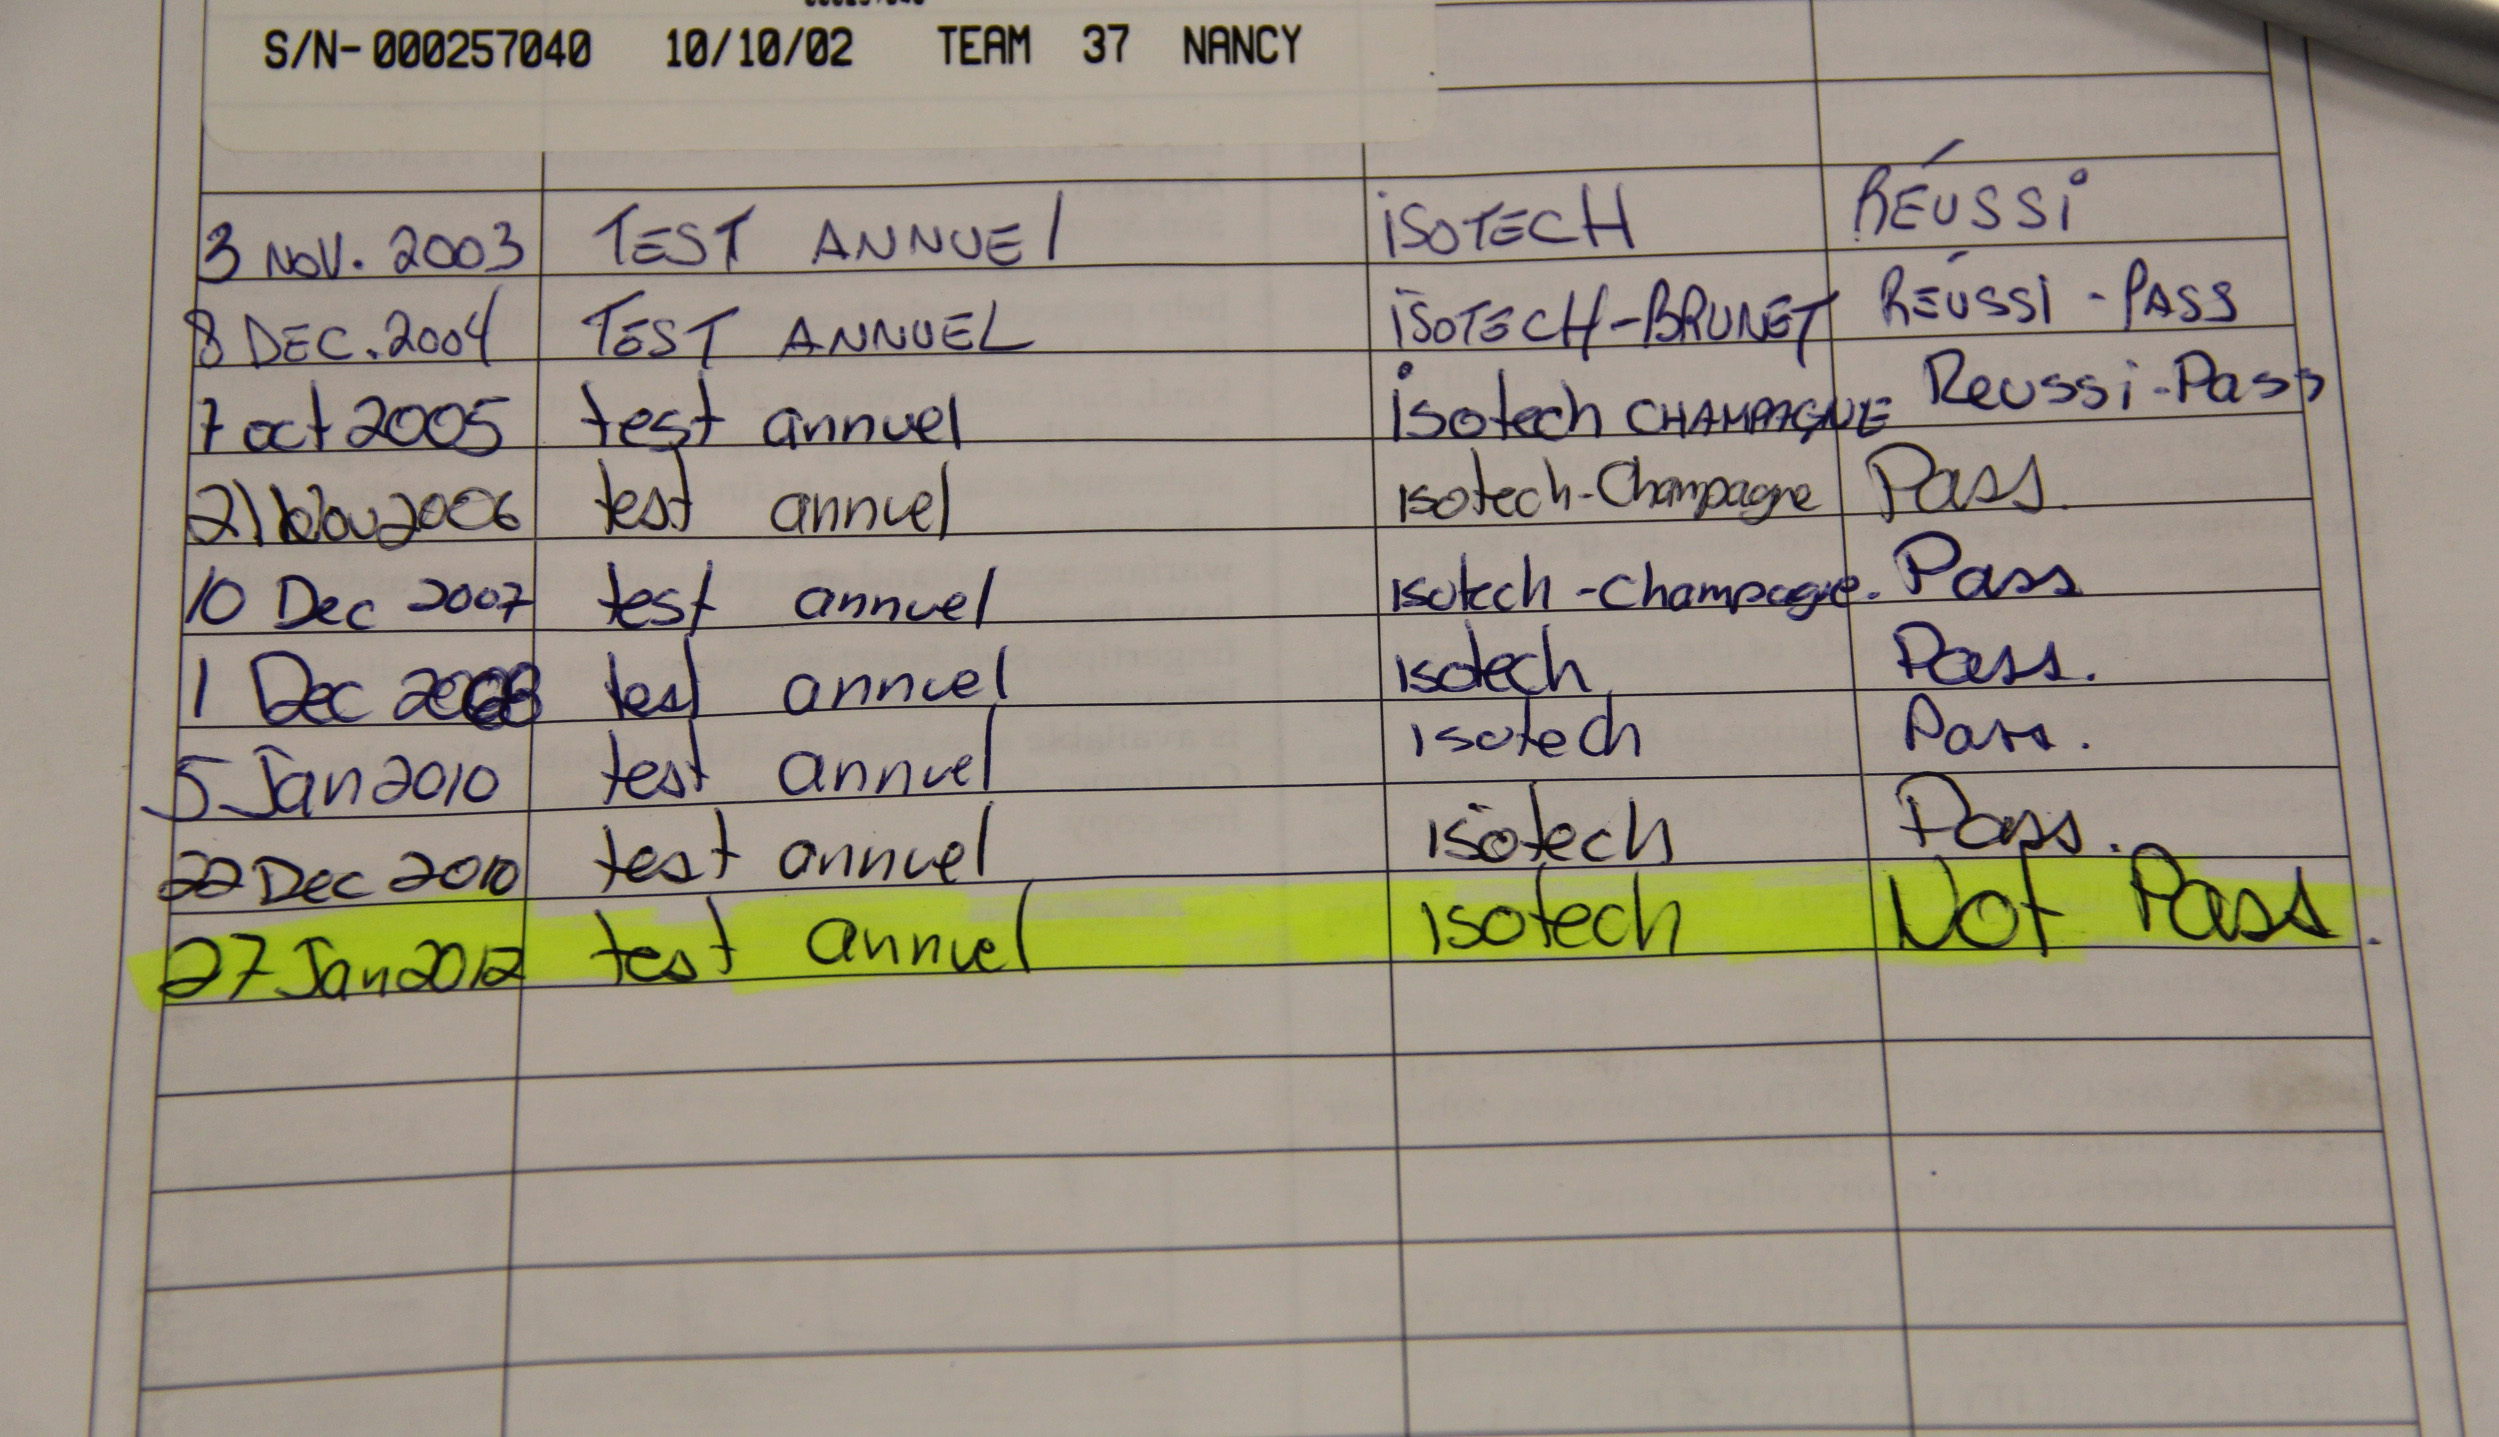 S/N-000257040 10/10/02 TEAM 37 NANCY
3 NOV. 2003 TEST ANNUEL ISOTECH RÉUSSI
8 DEC. 2004 TEST ANNUEL ISOTECH-BRUNET RÉUSSI - PASS
7 oct 2005 test annuel isotech CHAMPAGNE Reussi-Pass
21 Nov 2006 test annuel isotech-Champagne Pass.
10 Dec 2007 test annuel isotech-Champagne. Pass
1 Dec 2008 test annuel isotech Pass.
5 Jan 2010 test annuel isotech Pass.
22 Dec 2010 test annuel isotech Pass.
27 Jan 2012 test annuel isotech Not Pass.